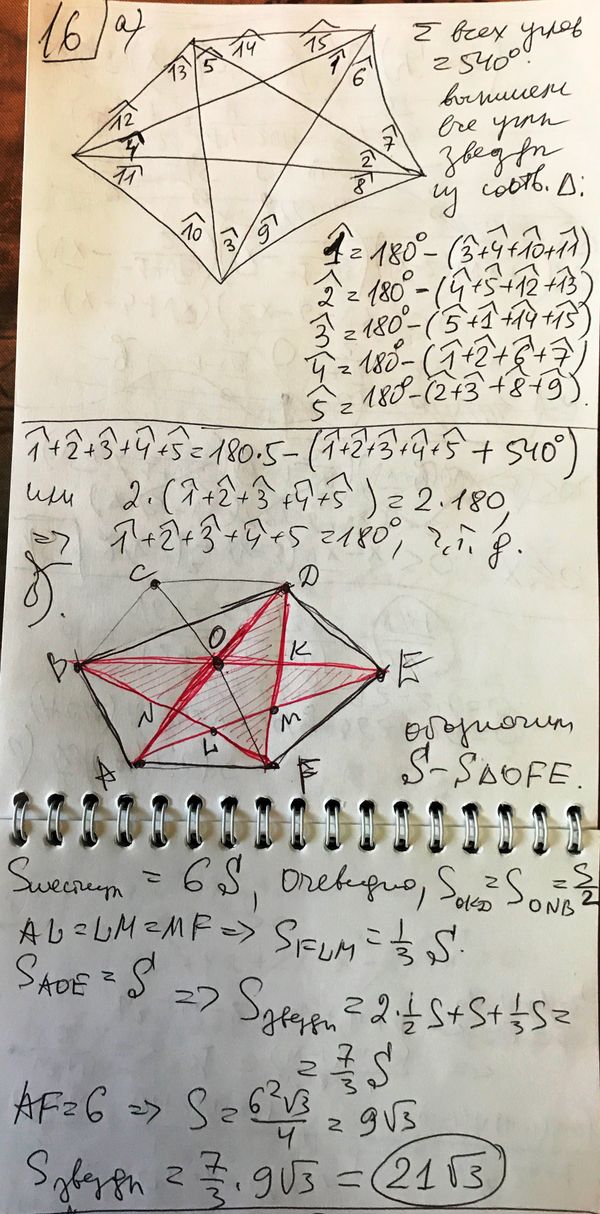 16 а)
Σ всех углов
= 540°.
выпишем
все углы
звезды
из соотв. Δ:
13 5 14 15 1 6
12 4 11 7 2 8
10 3 9
1̂ = 180° - (3̂+4̂+10̂+11̂)
2̂ = 180° - (4̂+5̂+12̂+13̂)
3̂ = 180° - (5̂+1̂+14̂+15̂)
4̂ = 180° - (1̂+2̂+6̂+7̂)
5̂ = 180° - (2̂+3̂+8̂+9̂).
1̂+2̂+3̂+4̂+5̂ = 180·5 - (1̂+2̂+3̂+4̂+5̂ + 540°)
или 2·(1̂+2̂+3̂+4̂+5̂) = 2·180,
=> 1̂+2̂+3̂+4̂+5 = 180°, ч.т.д.
б).
C D
B O K E
N L M
A F
обозначим
S - SΔOFE.
Sшестиуг = 6S, Очевидно, SOKD = SONB = S/2
AL = LM = MF => SFLM = 1/3 S.
SAOF = S => Sзвезды = 2·1/2 S + S + 1/3 S =
= 7/3 S
AF = 6 => S = 6²√3/4 = 9√3
Sзвезды = 7/3 · 9√3 = 21√3